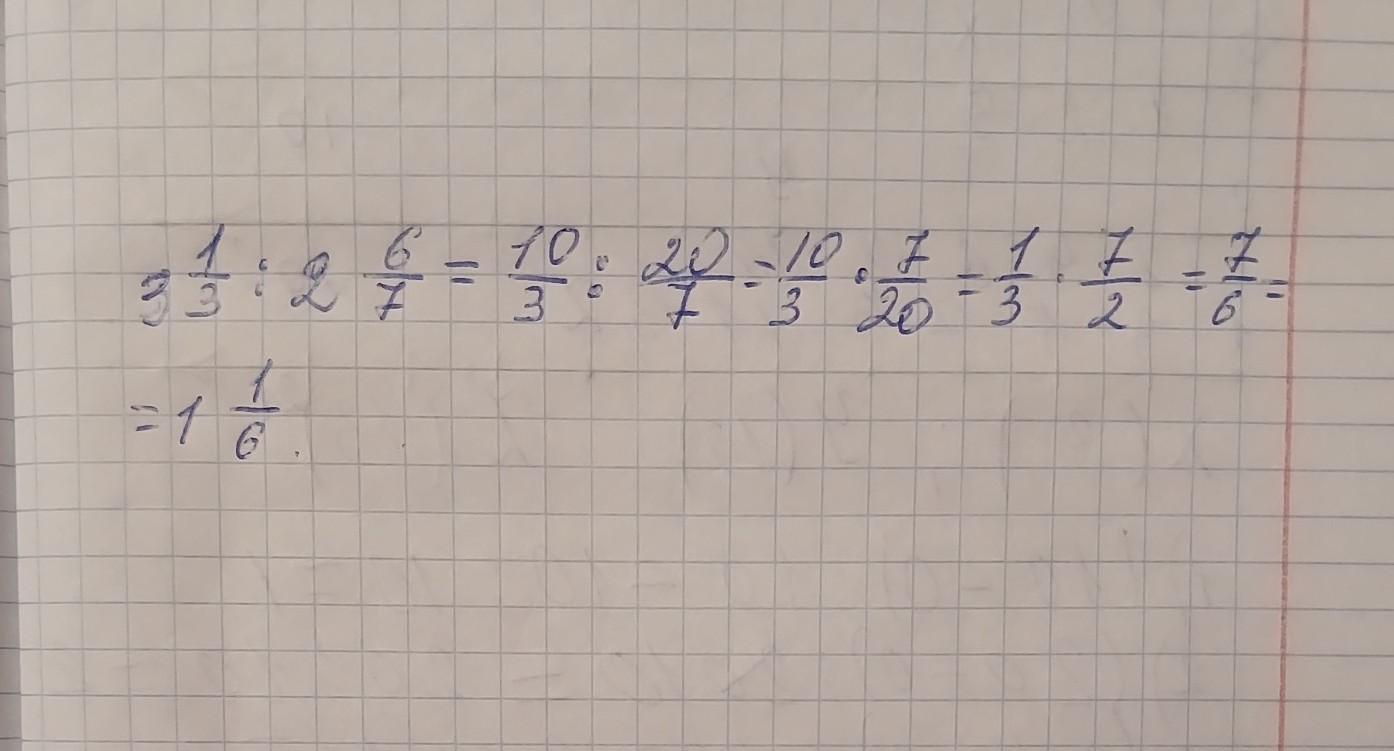 3 1/3 : 2 6/7 = 10/3 : 20/7 = 10/3 · 7/20 = 1/3 · 7/2 = 7/6 =
= 1 1/6.